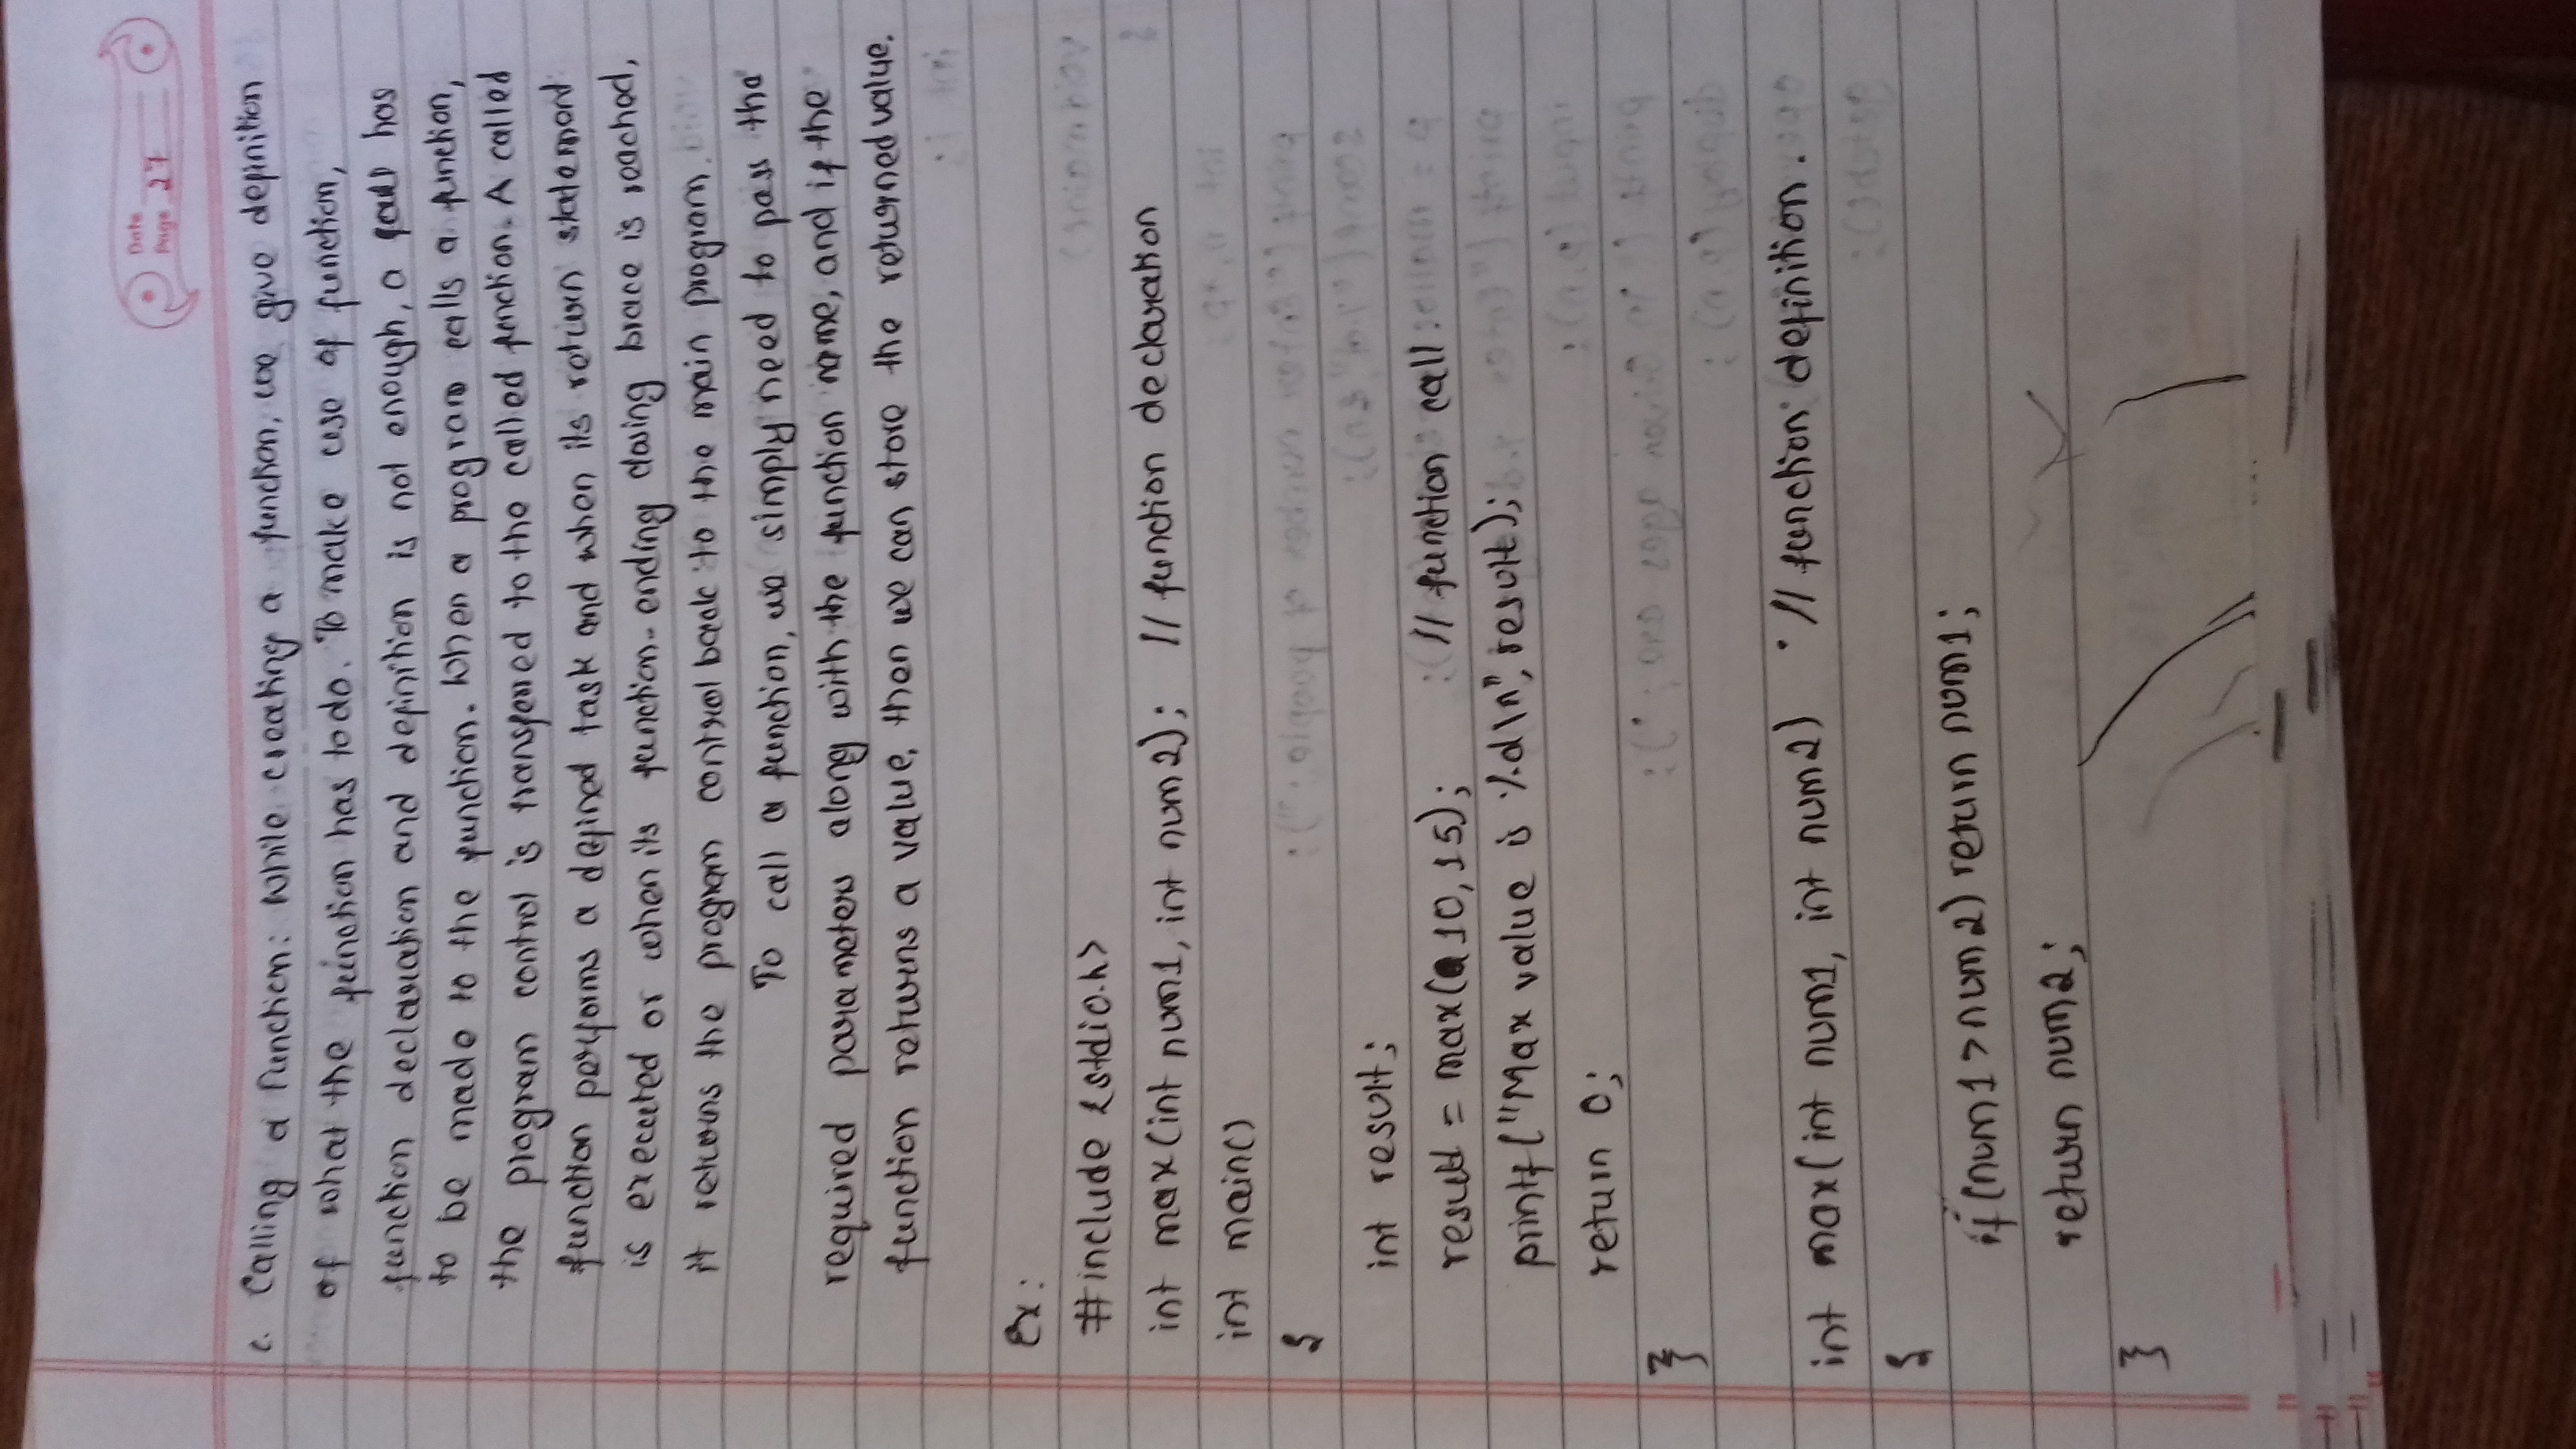 Date
Page 27
c. Calling a function: While creating a function, we give definition
of what the function has to do. To make use of function,
function declaration and definition is not enough, a call has
to be made to the function. When a program calls a function,
the program control is transferred to the called function. A called
function performs a defined task and when its return statement
is executed or when its function-ending closing brace is reached,
it returns the program control back to the main program.
To call a function, we simply need to pass the
required parameters along with the function name, and if the
function returns a value, then we can store the returned value.
Ex:
#include <stdio.h>
int max(int num1, int num2); // function declaration
int main()
{
int result;
result = max(10,15); // function call
printf("Max value is %d\n", result);
return 0;
}
int max(int num1, int num2) // function definition.
{
if(num1>num2) return num1;
return num2;
}